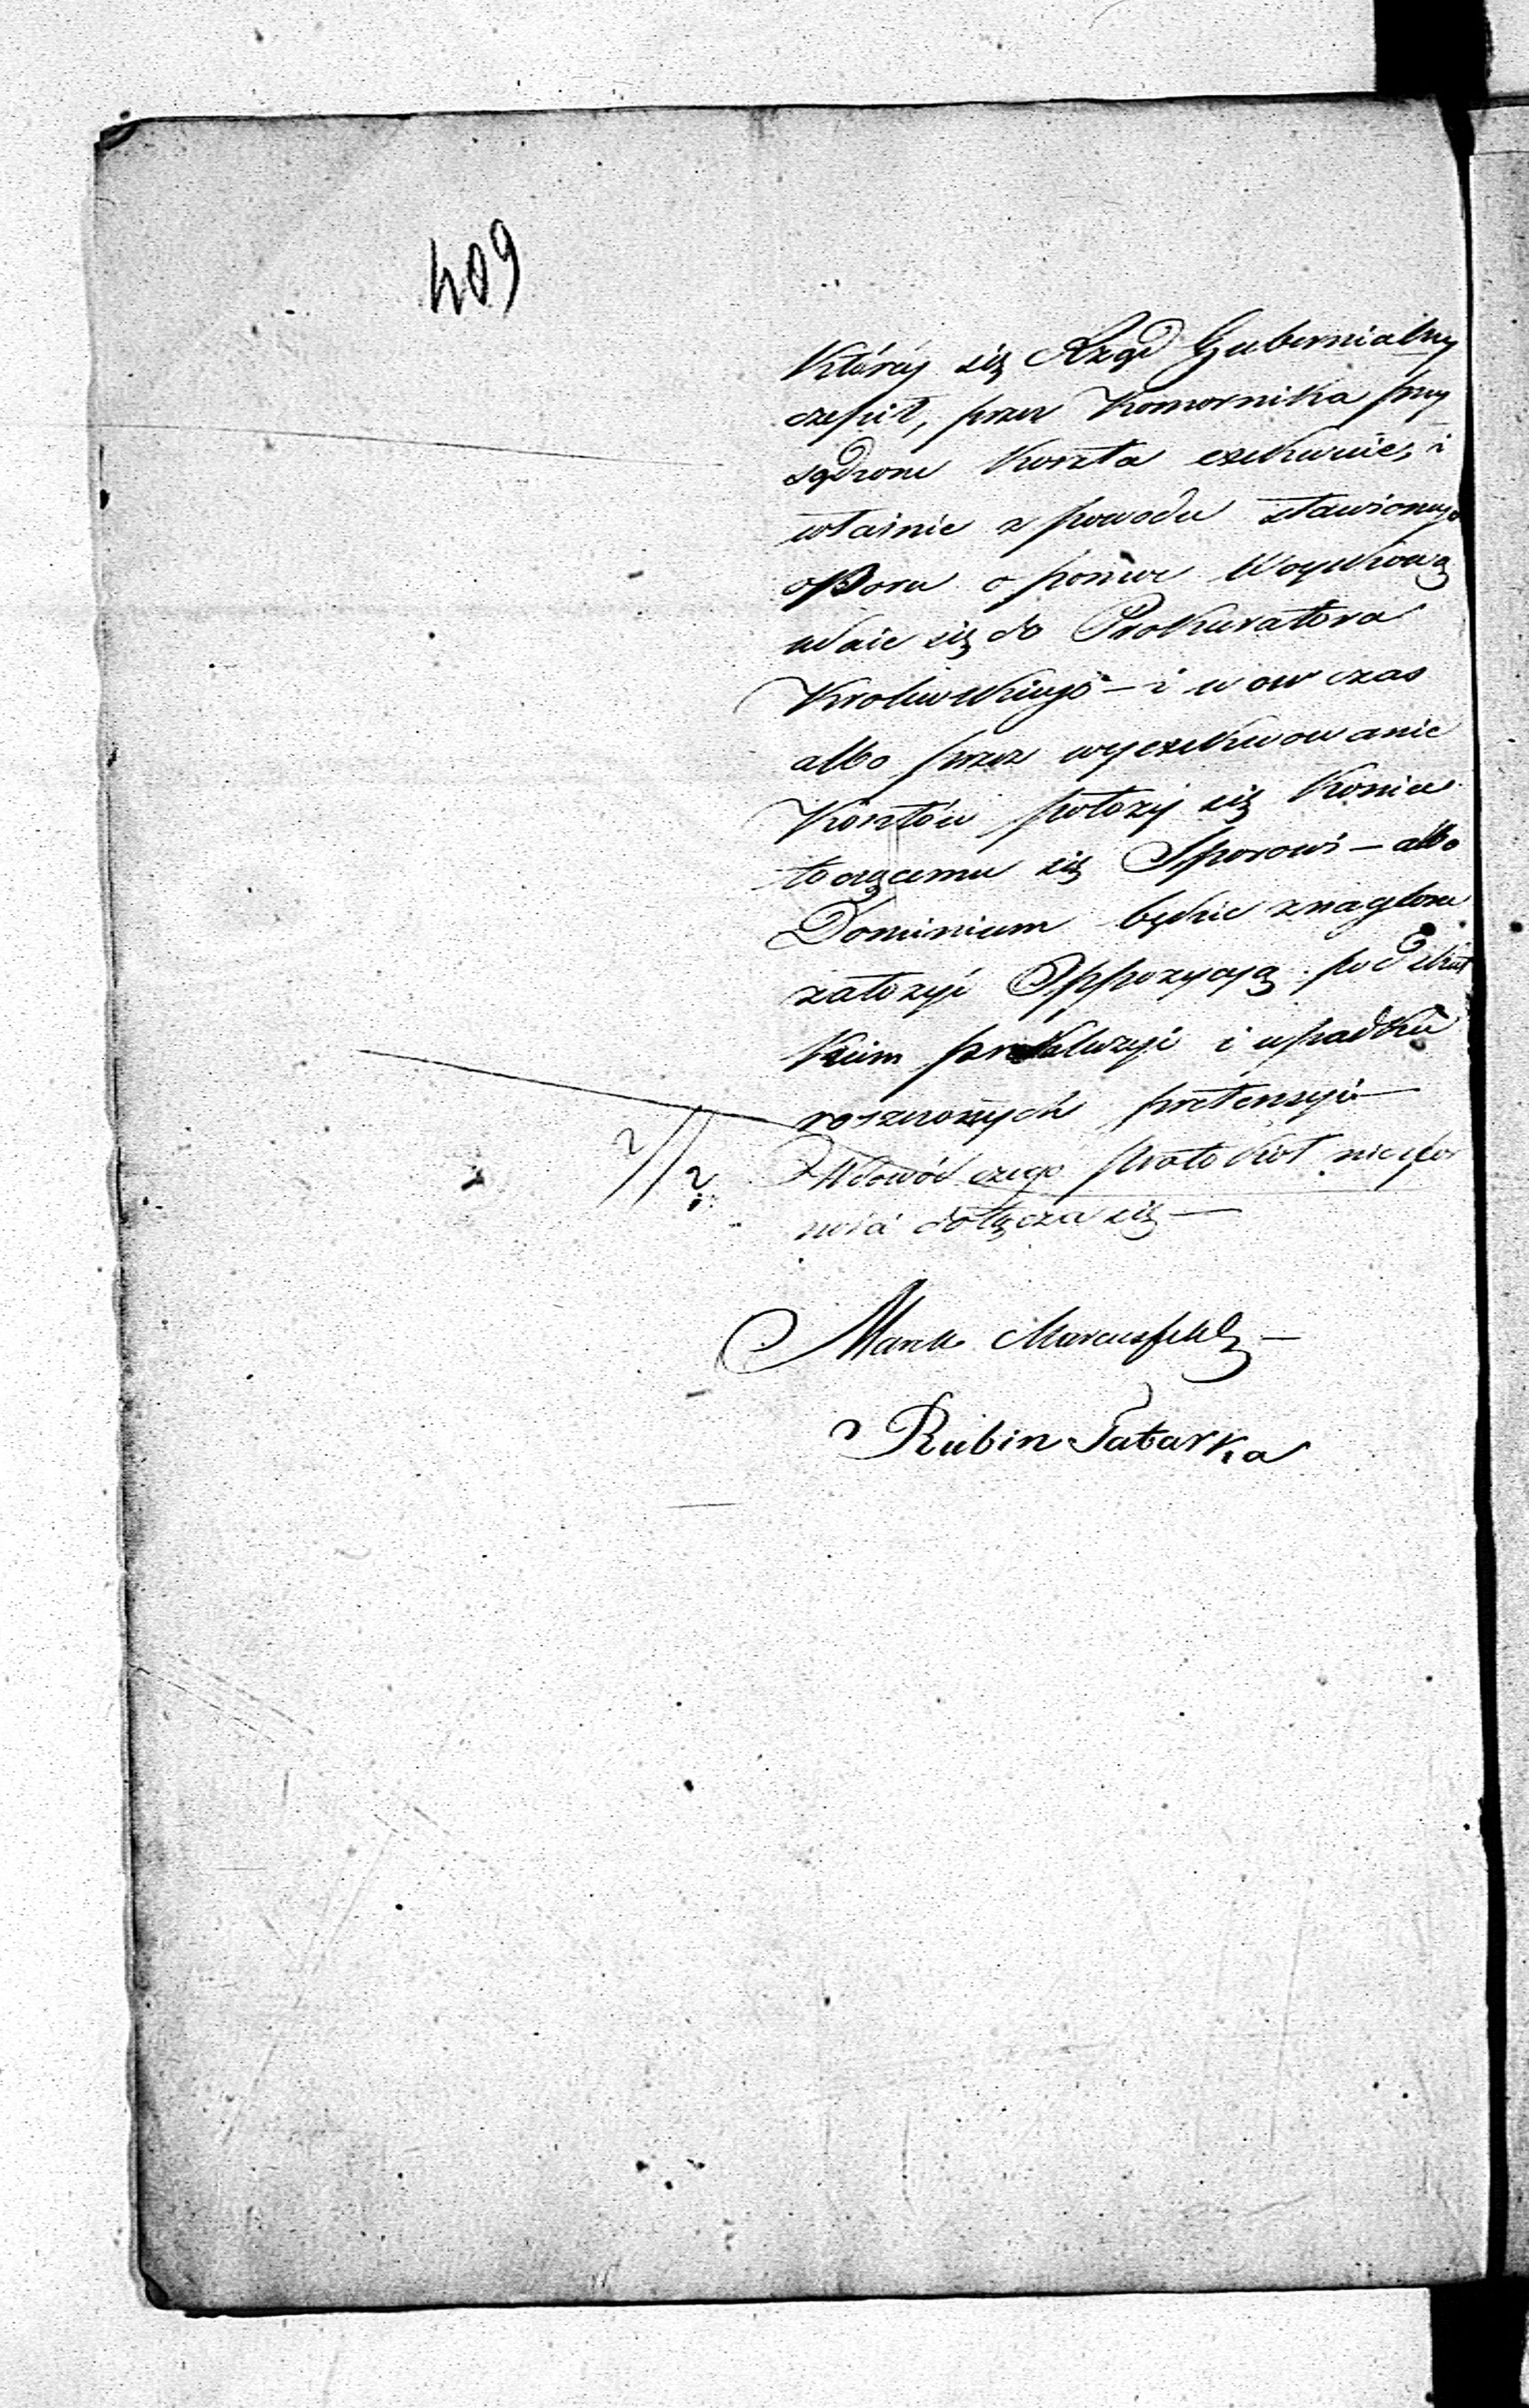 409
Któréj się Rząd Gubernialny
czepił, przez Komornika przy
sądzone Koszta exekwuie, i
właśnie z powodu stawionego
oporu o pomoc Woyskową
udaie się do Prokuratora
Krolewskiego – i w ow czas
albo przez wyexekwowanie
Kosztów położy się Koniec
toczącemu się Sporowi – albo
Dominium będzie znaglone
założyć Oppozycyą pod skut
kiem prekluzyi i upadku
roszczonych pretensyi –
W dowód czego protokół
dołącza się –
Marek Marcusfeld
Rubin Tatarka